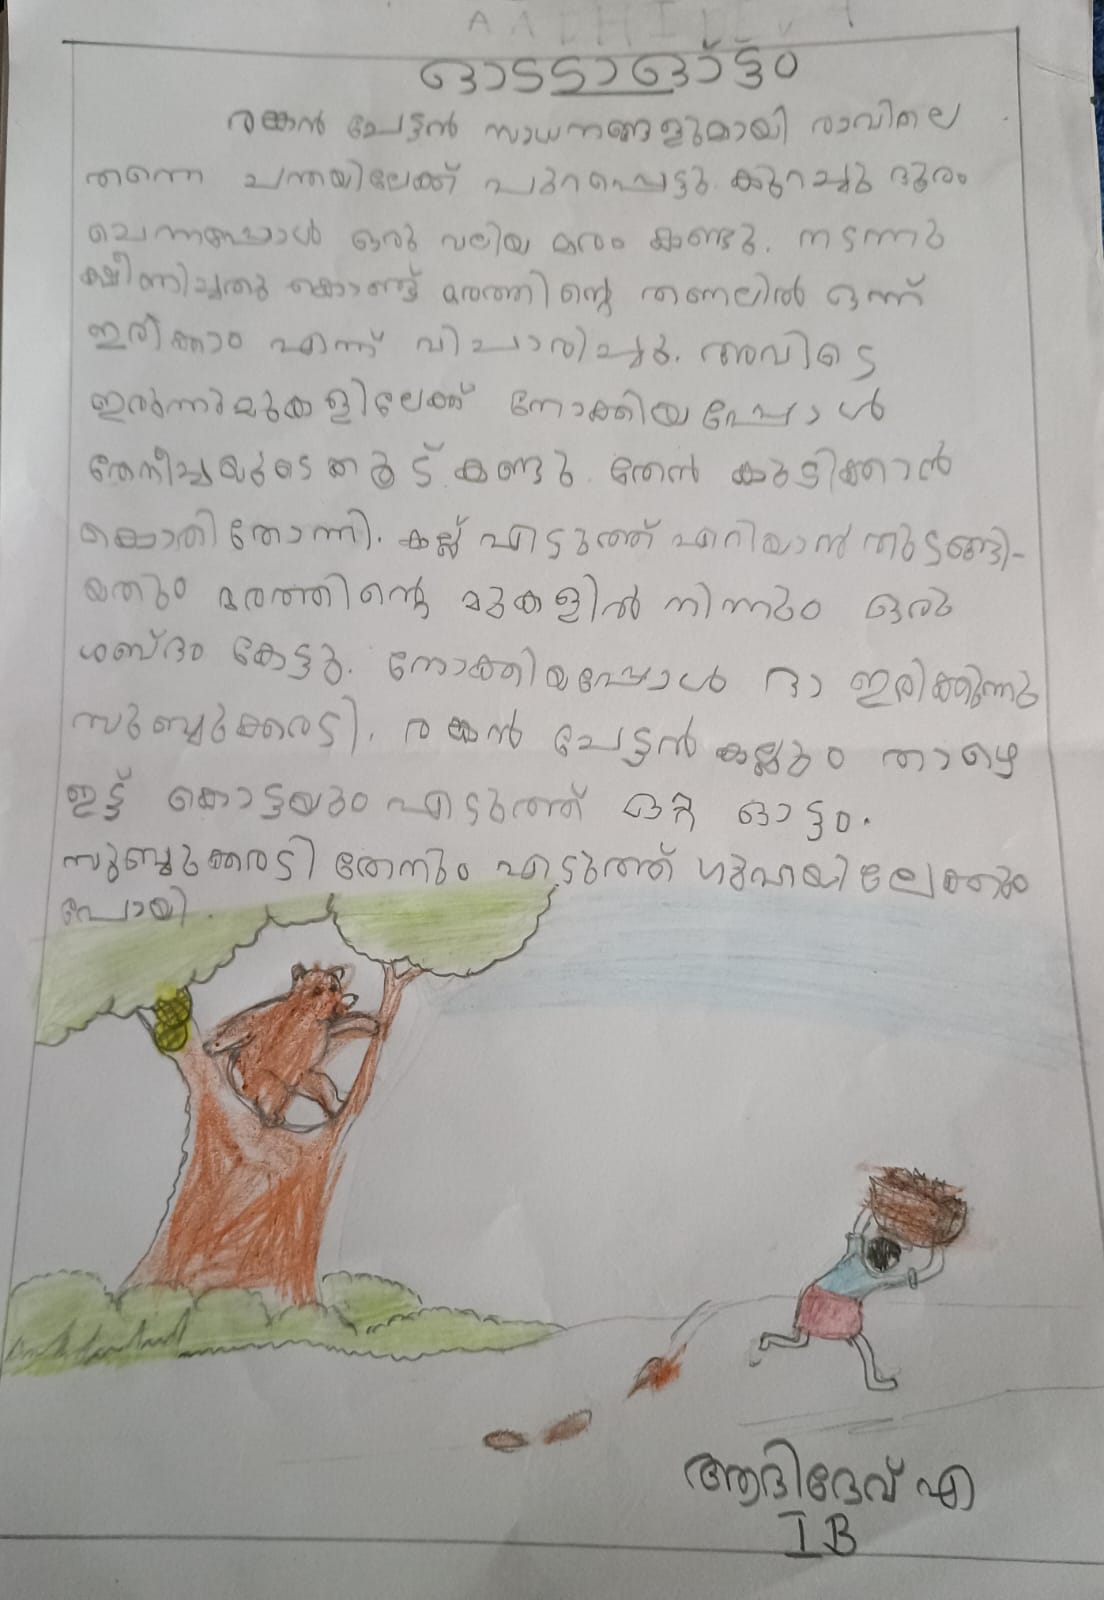 AADHIDEV A
ഓടടാ ഓട്ടം
രങ്കൻ ചേട്ടൻ സാധനങ്ങളുമായി രാവിലെ
തന്നെ ചന്തയിലേക്ക് പുറപ്പെട്ടു. കുറച്ചു ദൂരം
ചെന്നപ്പോൾ ഒരു വലിയ മരം കണ്ടു. നടന്നു
ക്ഷീണിച്ചതു കൊണ്ട് മരത്തിന്റെ തണലിൽ ഒന്ന്
ഇരിക്കാം എന്ന് വിചാരിച്ചു. അവിടെ
ഇരുന്നു മുകളിലേക്ക് നോക്കിയപ്പോൾ
തേനീച്ചയുടെ കൂട് കണ്ടു. തേൻ കുടിക്കാൻ
കൊതി തോന്നി. കല്ല് എടുത്ത് എറിയാൻ തുടങ്ങി-
യതും മരത്തിന്റെ മുകളിൽ നിന്നും ഒരു
ശബ്ദം കേട്ടു. നോക്കിയപ്പോൾ ദാ ഇരിക്കുന്നു
സുബ്ബുക്കരടി. രങ്കൻ ചേട്ടൻ കല്ലും താഴെ
ഇട്ട് കൊട്ടയും എടുത്ത് ഒറ്റ ഓട്ടം.
സുബ്ബുക്കരടി തേനും എടുത്ത് ഗുഹയിലേക്കും
പോയി.
ആദിദേവ് എ
I B